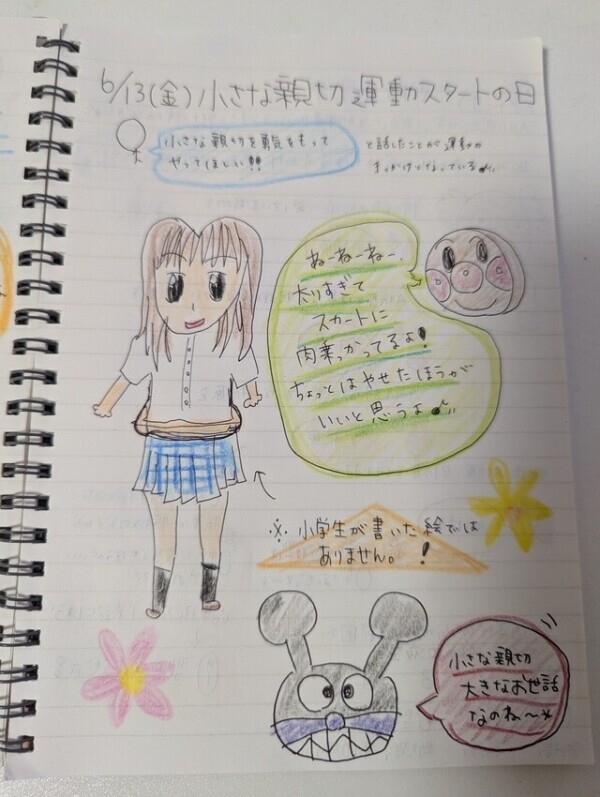 6/13(金)小さな親切運動スタートの日
小さな親切を勇気をもって
やってほしい!!
と話したことが運動の
きっかけとなっている
ねーねーねー、
太りすぎて
スカートに
肉乗っかってるよ!
ちょっとはやせたほうが
いいと思うよ
※小学生が書いた絵では
ありません。!
小さな親切
大きなお世話
なのね〜